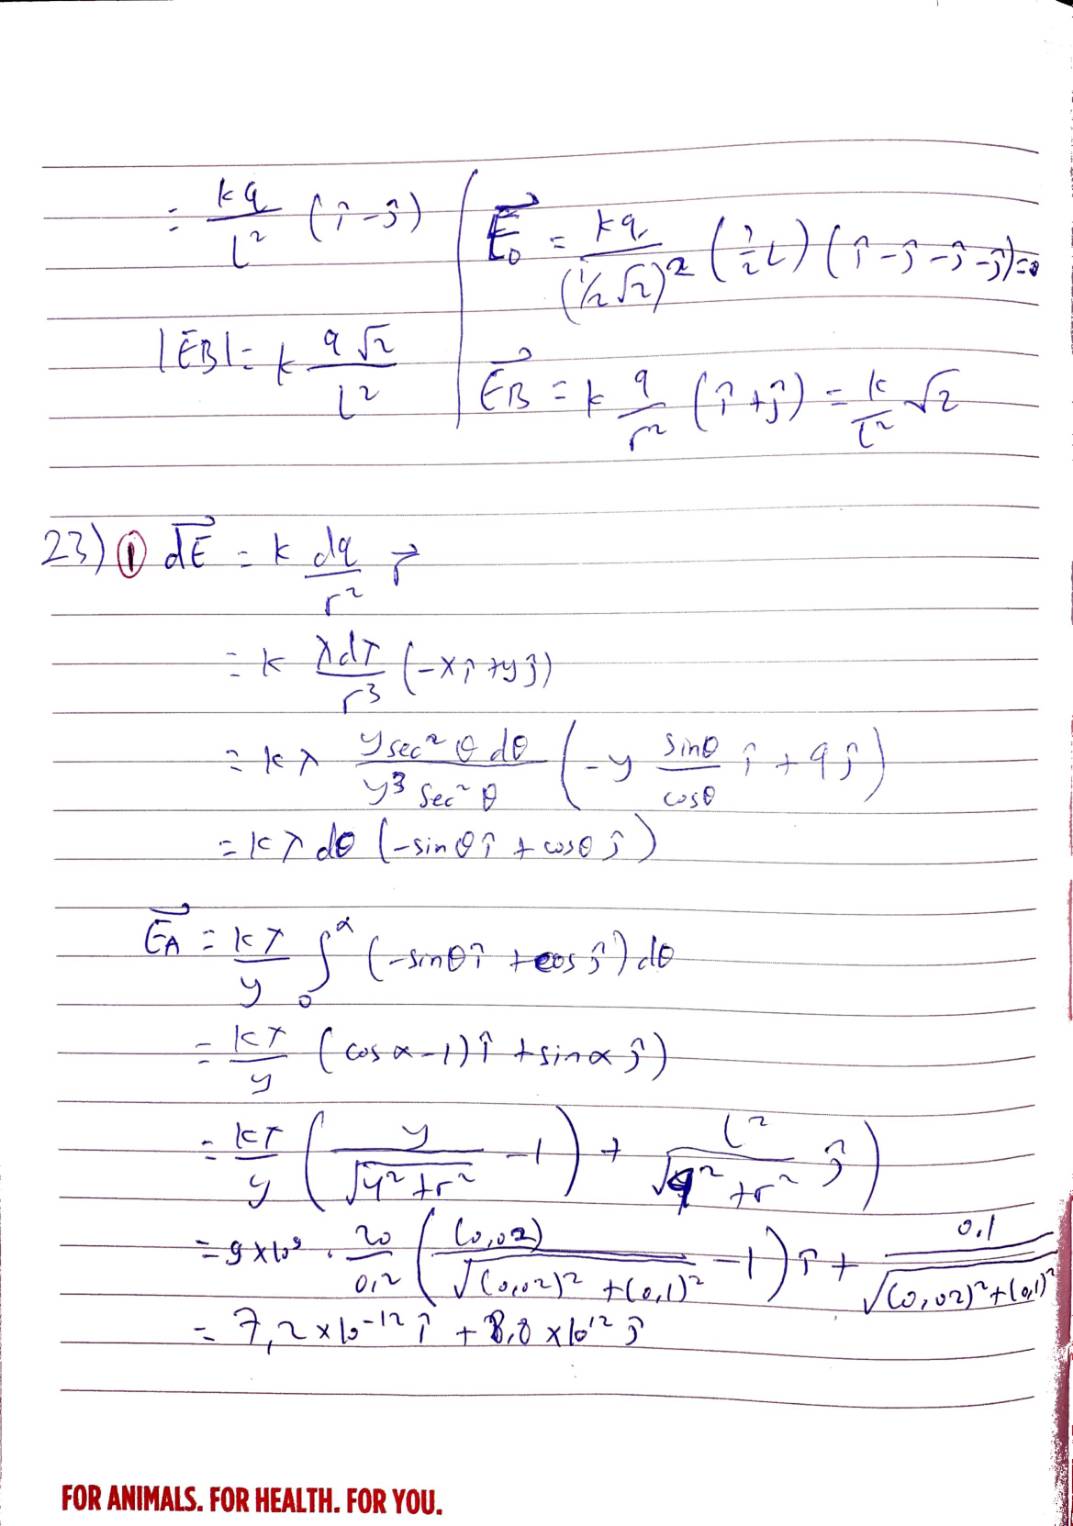 = kq/L² (î - ĵ)
|EB| = k q√2/L²
E₀ = kq/(½√2)² (½L) (î - ĵ - ĵ - ĵ) = 0
EB = k q/r² (î + ĵ) = k/L² √2
23) ① dE = k dq/r² r̂
= k λdx/r³ (-xî + yĵ)
= kλ y sec²θ dθ/y³ sec²θ (-y sinθ/cosθ î + qĵ)
= kλ dθ (-sinθ î + cosθ ĵ)
EA = kλ/y ∫₀^α (-sinθ î + cos ĵ) dθ
= kλ/y (cos α - 1) î + sin α ĵ)
= kλ/y (y/√(y² + r²) - 1) + L²/√(y² + r²) ĵ)
= 9 × 10⁹ · 20/0,2 ((0,02)/√((0,02)² + (0,1)²) - 1) î + 0,1/√((0,02)² + (0,1)²)
= 7,2 × 10⁻¹² î + 8,8 × 10¹² ĵ
FOR ANIMALS. FOR HEALTH. FOR YOU.